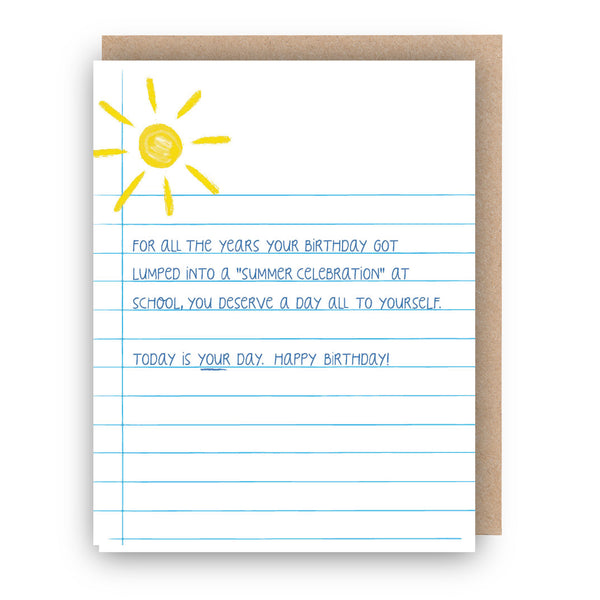 FOR ALL THE YEARS YOUR BIRTHDAY GOT
LUMPED INTO A "SUMMER CELEBRATION" AT
SCHOOL, YOU DESERVE A DAY ALL TO YOURSELF.
TODAY IS YOUR DAY. HAPPY BIRTHDAY!